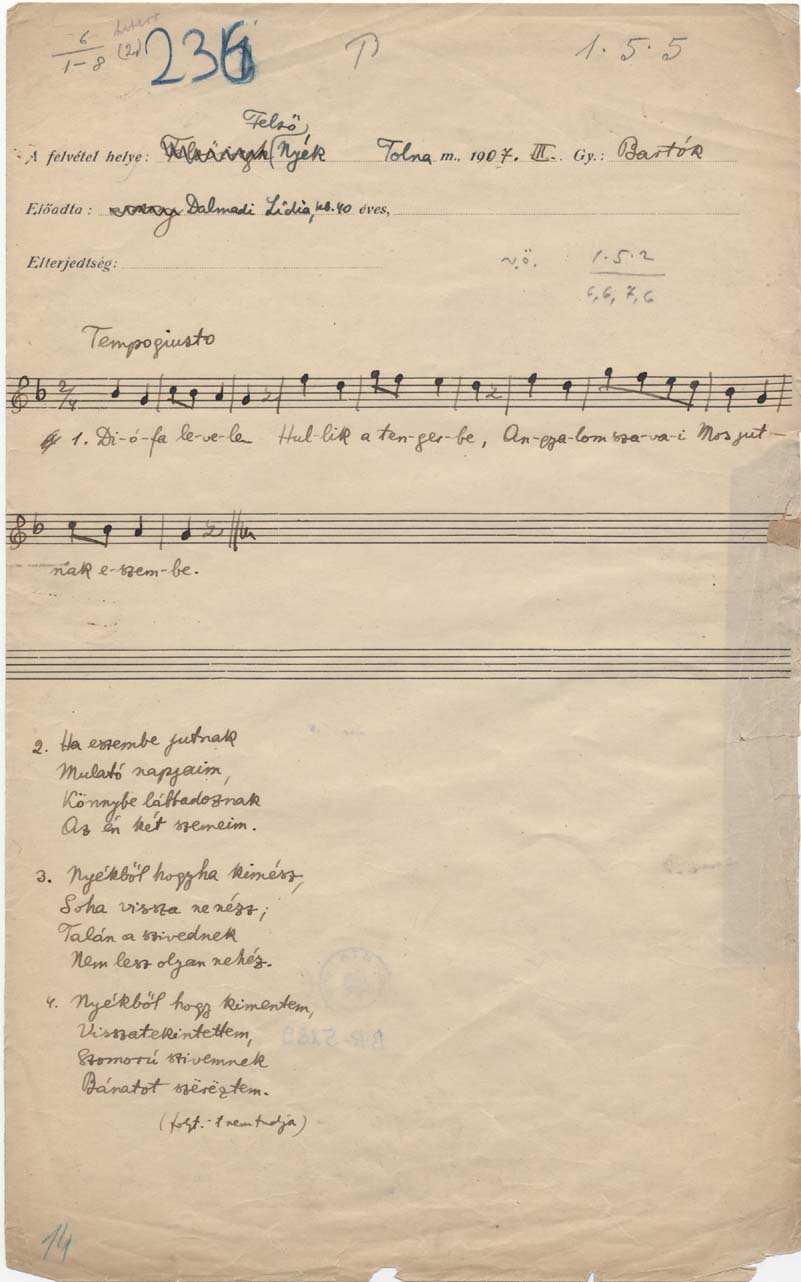 6
1–8
(2.)
236
1. 5. 5
Felső
A felvétel helye: Nyék Tolna m., 1907. III. Gy.: Bartók
Előadta: Dalmadi Lídia, kb. 40 éves,
Elterjedtség:
v.ö. 1. 5. 2
6, 6, 7, 6
Tempo giusto
2/4
1. Di-ó-fa le-ve-le Hul-lik a ten-ger-be, An-gya-lom sza-va-i Mos jut-
nak e-szem-be.
2. Ha eszembe jutnak
Mulató napjaim,
Könnybe lábbadoznak
Az én két szemeim.
3. Nyékből hogyha kimész,
Soha vissza ne nézz;
Talán a szivednek
Nem lesz olyan nehéz.
4. Nyékből hogy kimentem,
Visszatekintettem,
Szomorú szivemnek
Bánatot szëréztem.
(folyt.-t nem tudja)
14